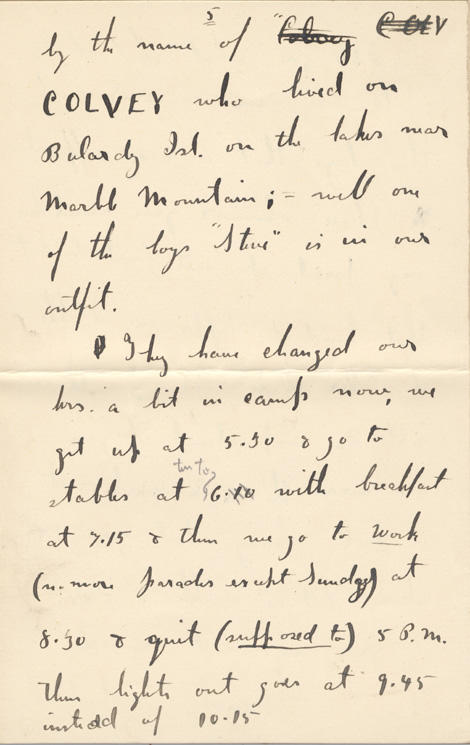 5
by the name of "Colvey COLV
COLVEY who lived on
Bulardy Isl. on the lakes near
Marble Mountain; – well one
of the boys "Steve" is in our
outfit.
They have changed our
hrs. a bit in camp now, we
get up at 5.30 & go to
ten to 7
stables at 6.10 with breakfast
at 7.15 & then we go to work
(no more parades except Sunday) at
8.30 & quit (supposed to) 5 P.M.
then lights out goes at 9.45
instead of 10.15